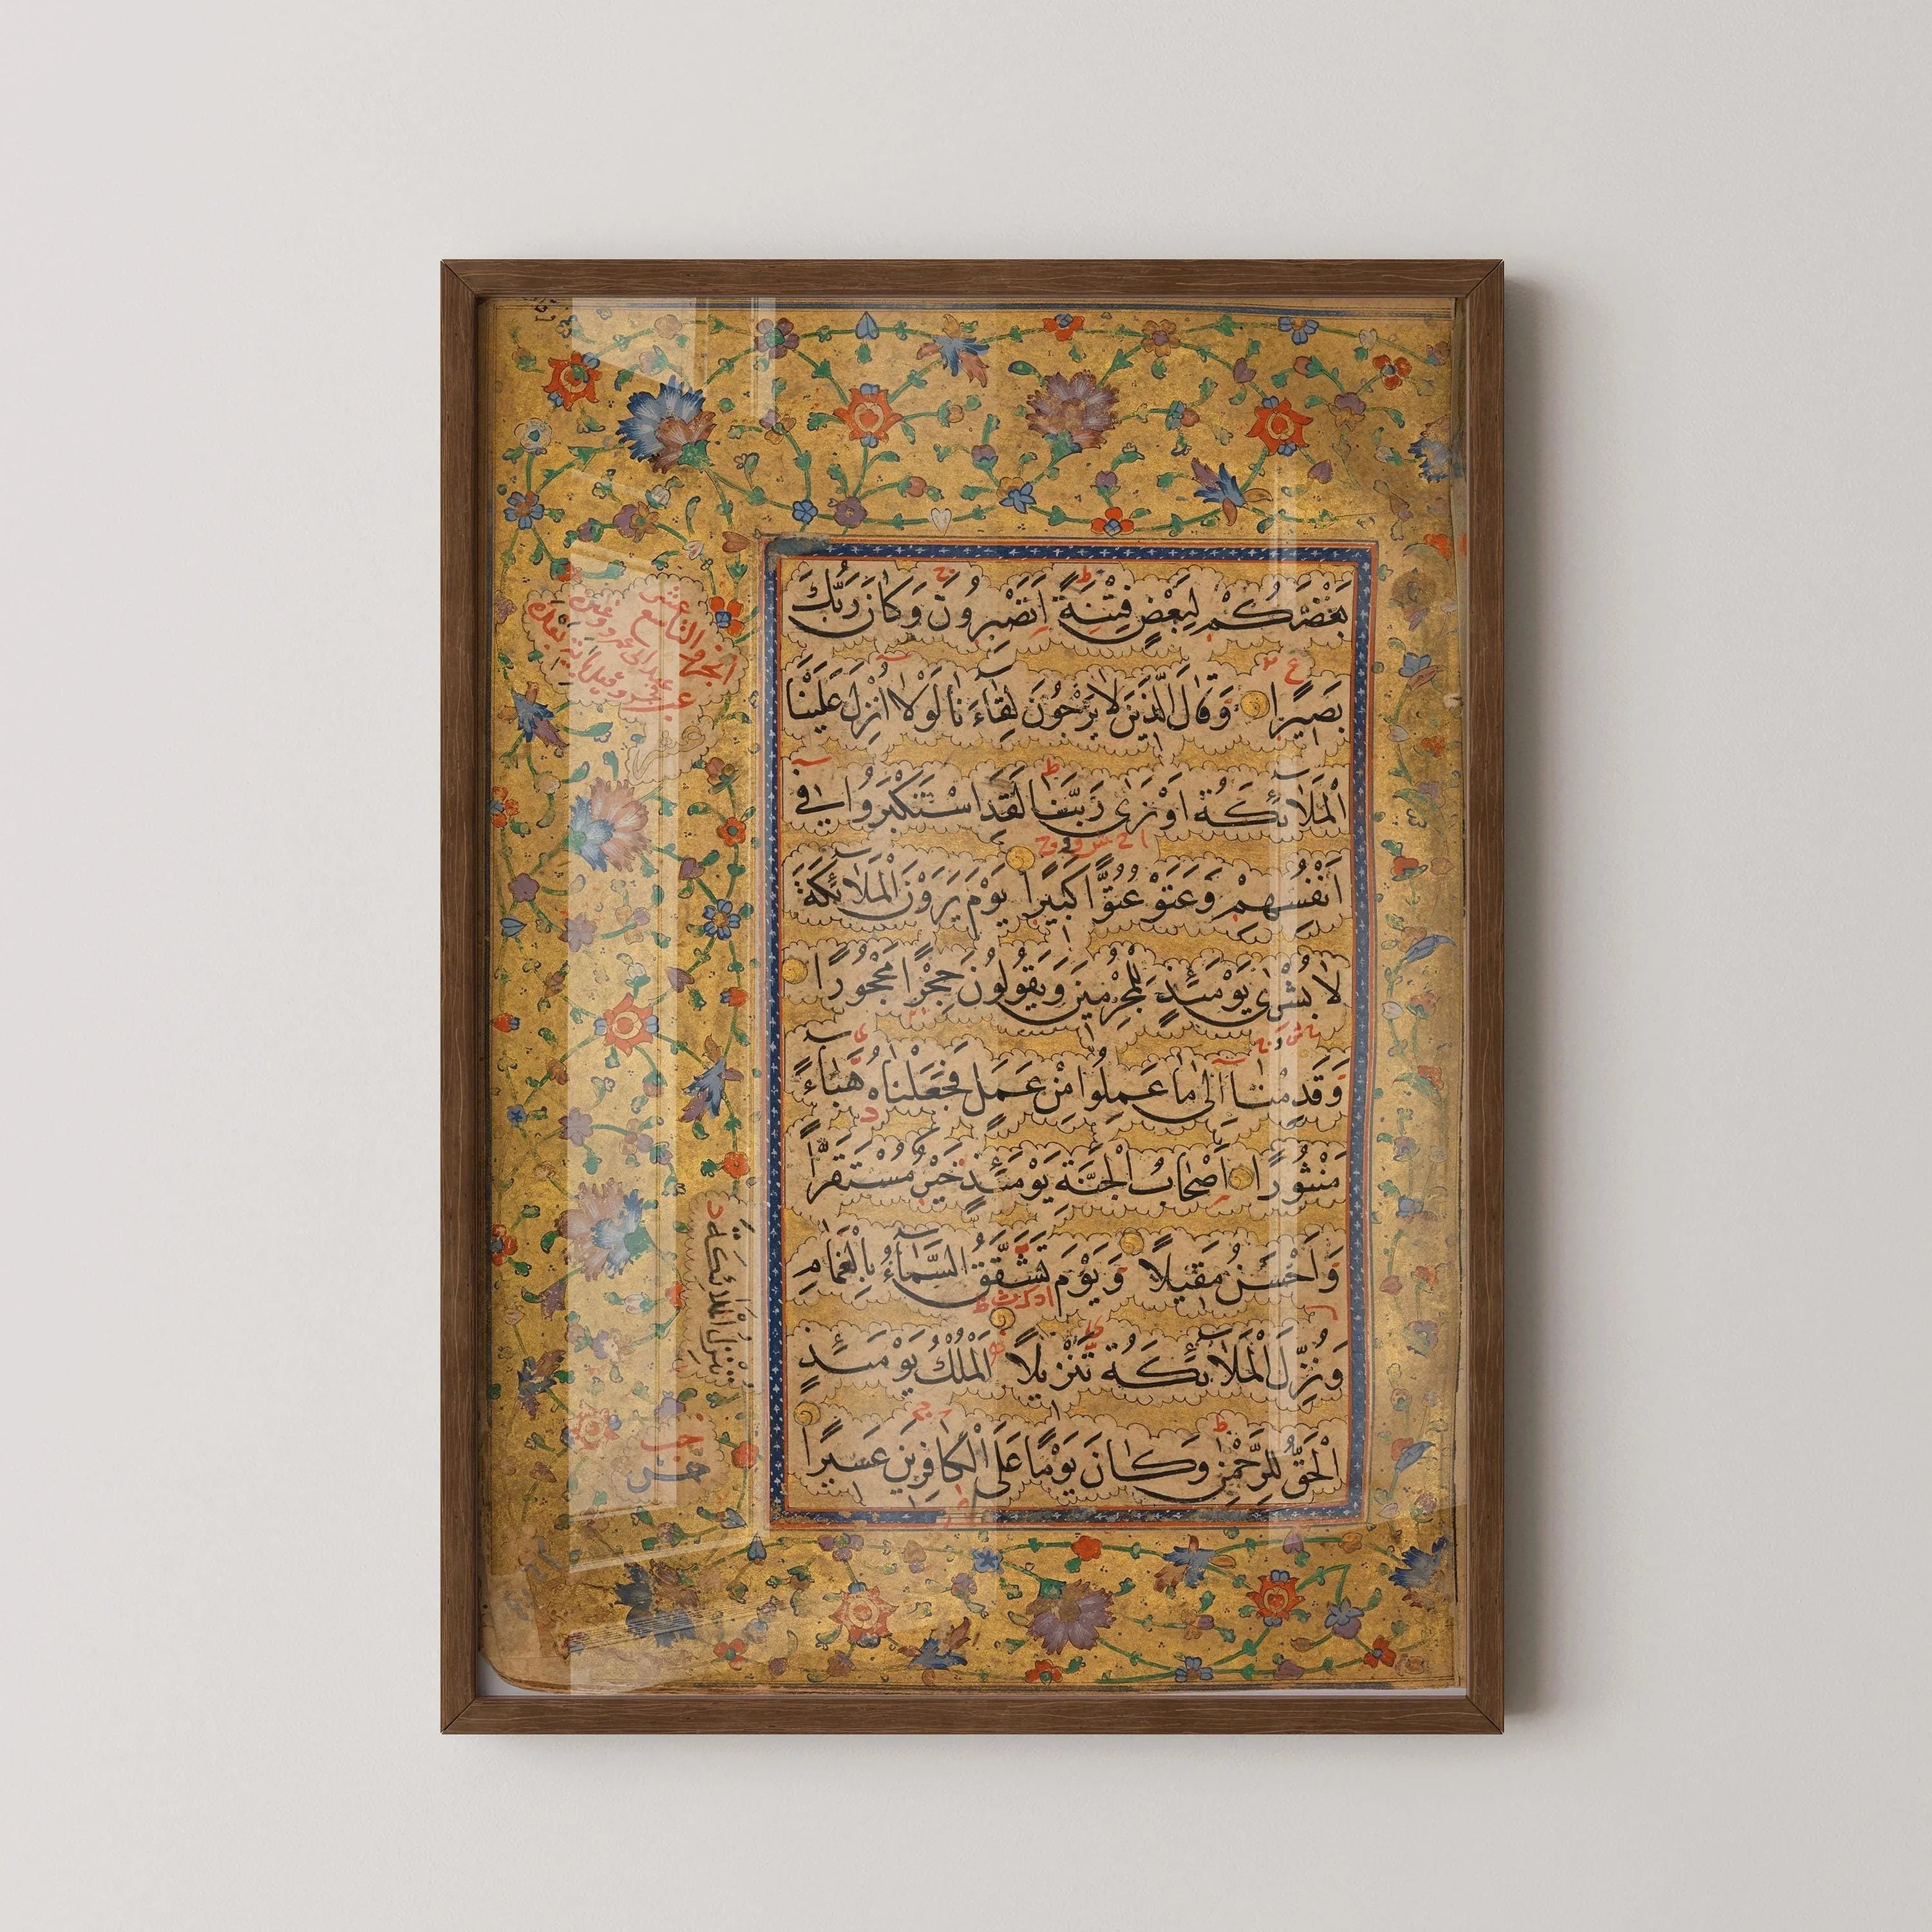 بَعْضَكُمْ لِبَعْضٍ فِتْنَةً اَتَصْبِرُونَ وَكَانَ رَبُّكَ
بَصِيرًا وَقَالَ الَّذِينَ لَا يَرْجُونَ لِقَاءَنَا لَوْلَا اُنْزِلَ عَلَيْنَا
الْمَلَائِكَةُ اَوْ نَرٰى رَبَّنَا لَقَدِ اسْتَكْبَرُوا فِي
اَنْفُسِهِمْ وَعَتَوْ عُتُوًّا كَبِيرًا يَوْمَ يَرَوْنَ الْمَلَائِكَةَ
لَا بُشْرٰى يَوْمَئِذٍ لِلْمُجْرِمِينَ وَيَقُولُونَ حِجْرًا مَحْجُورًا
وَقَدِمْنَا اِلٰى مَا عَمِلُوا مِنْ عَمَلٍ فَجَعَلْنَاهُ هَبَاءً
مَنْثُورًا اَصْحَابُ الْجَنَّةِ يَوْمَئِذٍ خَيْرٌ مُسْتَقَرًّا
وَاَحْسَنُ مَقِيلًا وَيَوْمَ تَشَقَّقُ السَّمَاءُ بِالْغَمَامِ
وَنُزِّلَ الْمَلَائِكَةُ تَنْزِيلًا اَلْمُلْكُ يَوْمَئِذٍ
الْحَقُّ لِلرَّحْمٰنِ وَكَانَ يَوْمًا عَلَى الْكَافِرِينَ عَسِيرًا
الجزو التاسع عشر
نُنْزِلُ الْمَلَائِكَةَ
حزب